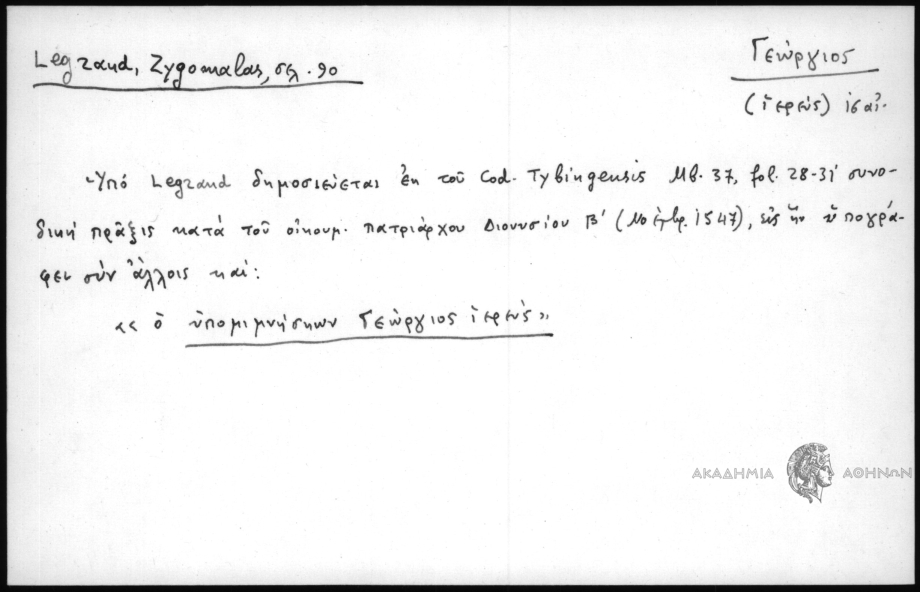 Legrand, Zygomalas, σελ. 90
Γεώργιος
(ἱερεύς) ις΄ αἰ.
Ὑπό Legrand δημοσιεύεται ἐκ τοῦ Cod. Tybingensis Mb. 37, fol. 28-31 συνο-
δική πρᾶξις κατά τοῦ οἰκουμ. πατριάρχου Διονυσίου Β΄ (Νοέμβρ. 1547), εἰς ἥν ὑπογρά-
φει σύν ἄλλοις καί:
«ὁ ὑπομιμνήσκων Γεώργιος ἱερεύς»
ΑΚΑΔΗΜΙΑ ΑΘΗΝΩΝ